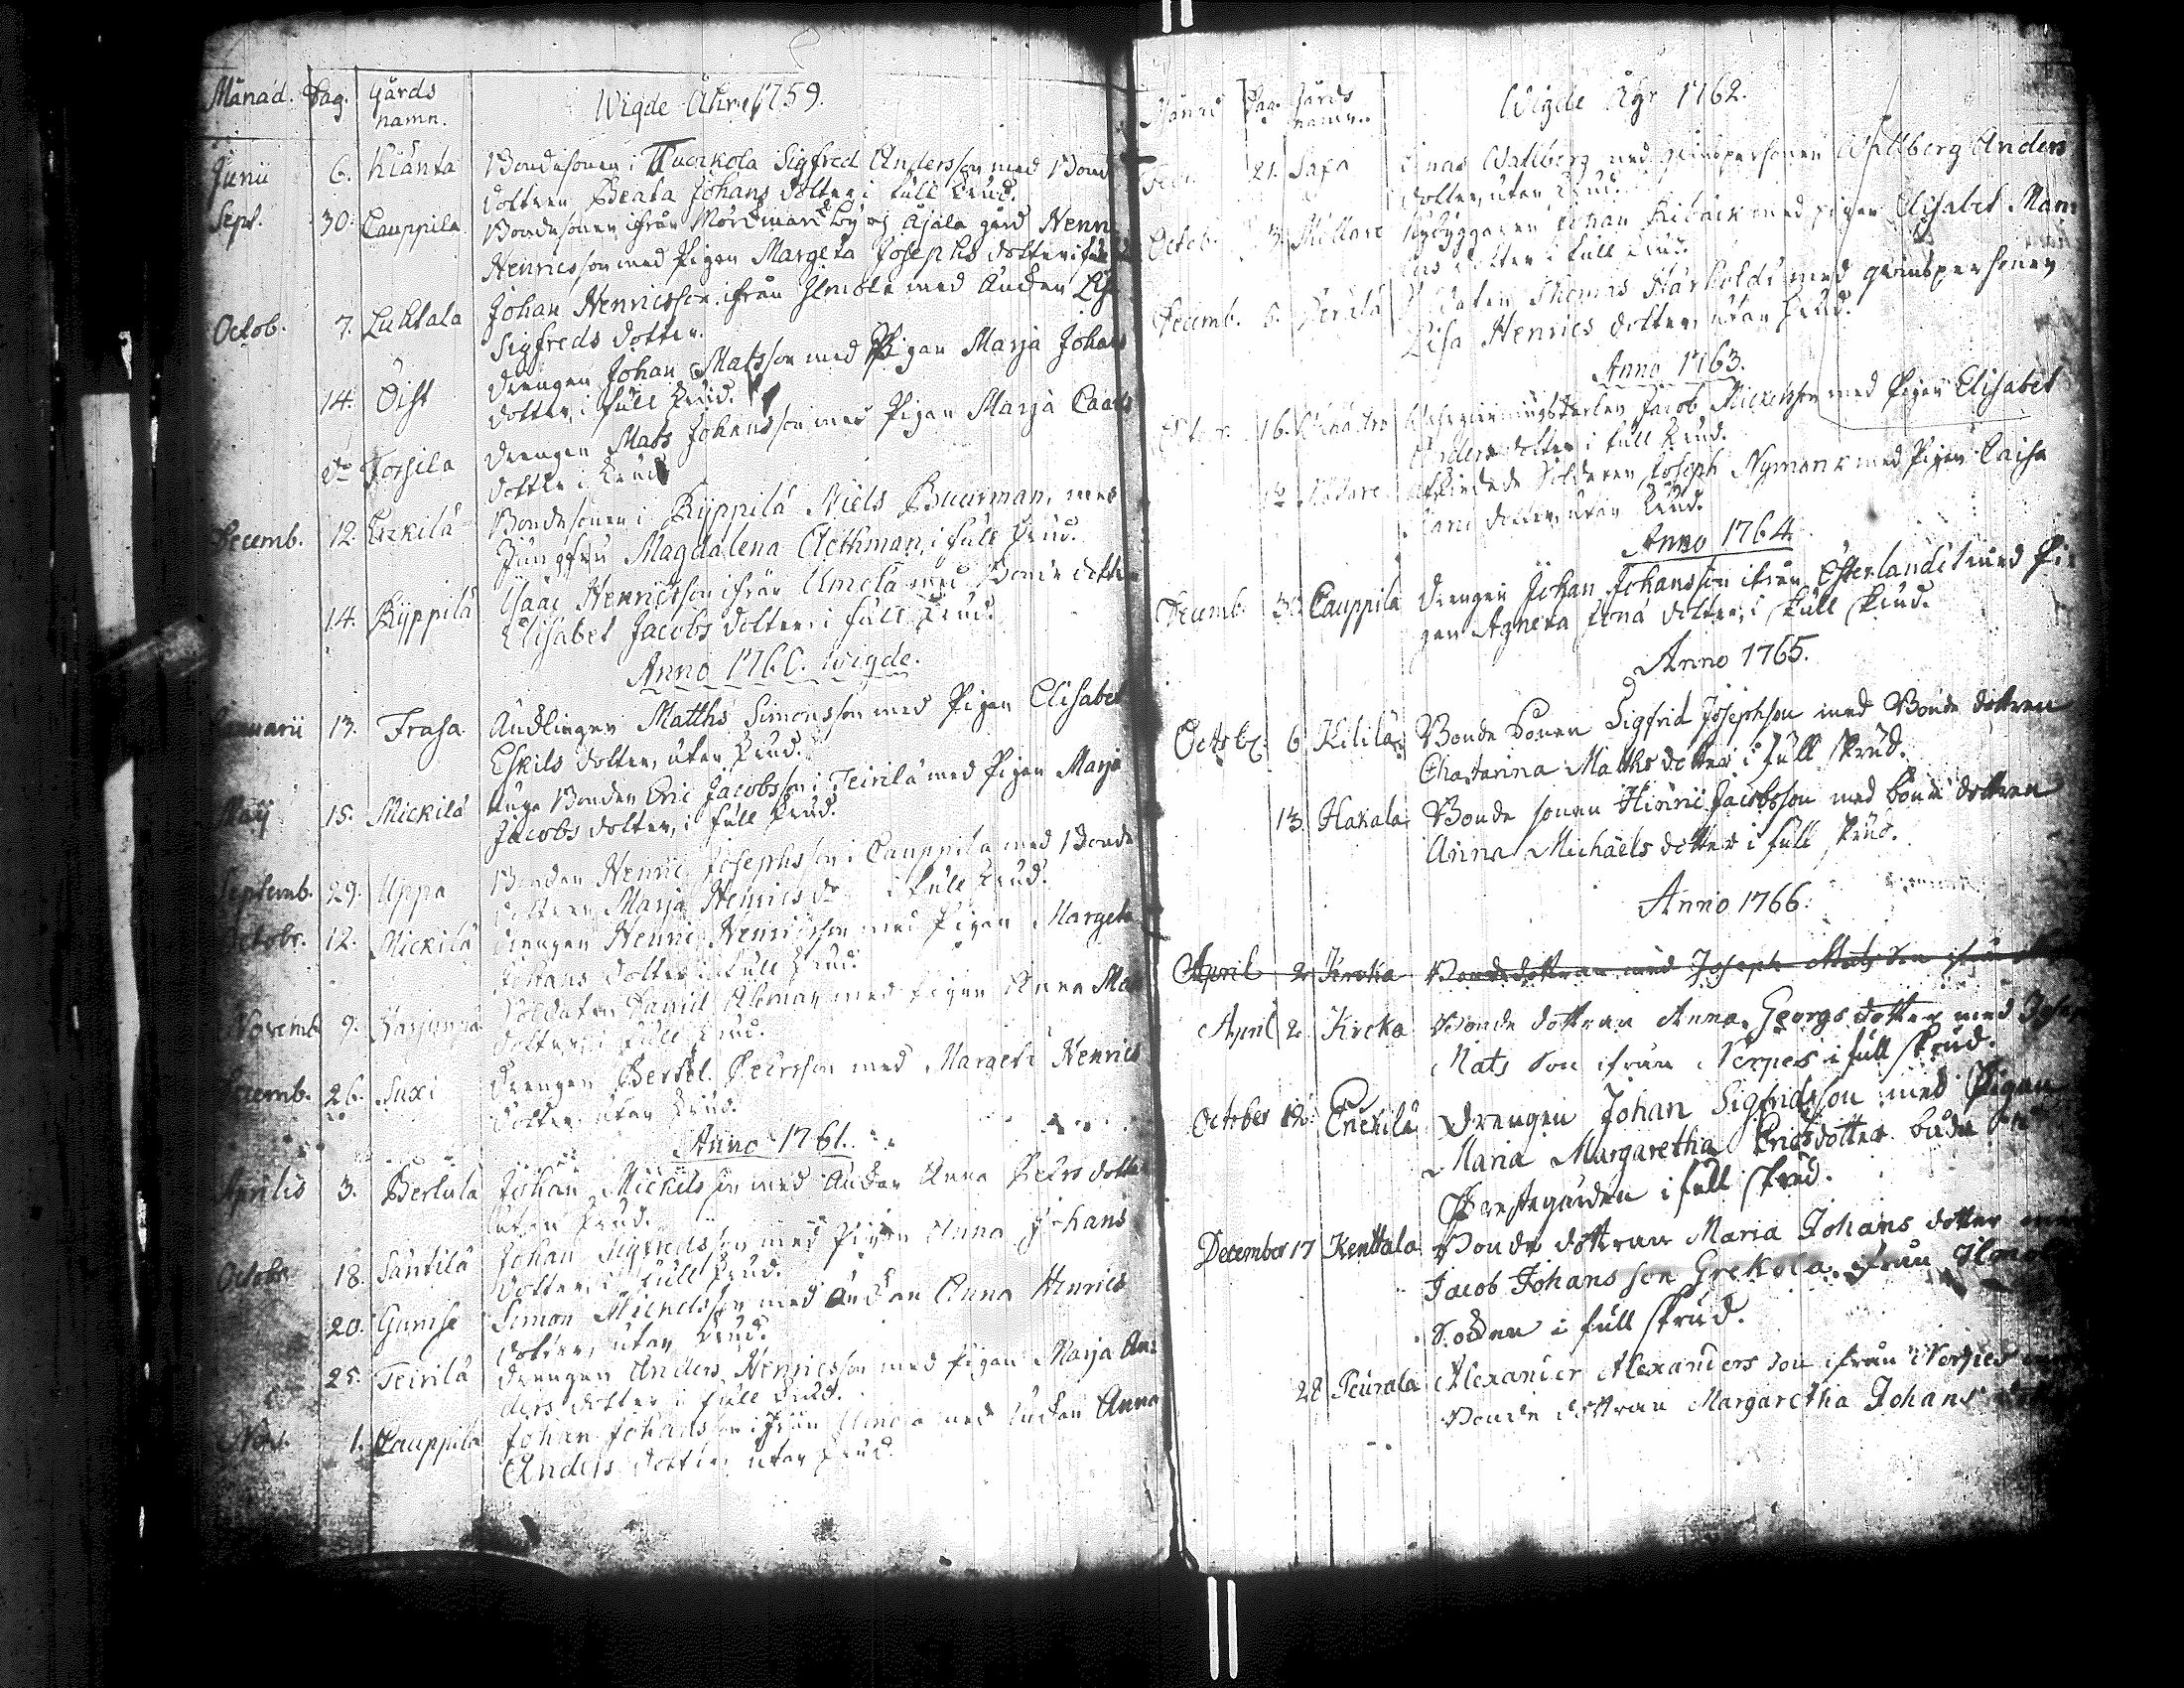 Månad. Dag. Gårds namn. Wigde Åhr 1759.
Junii 6. Kiänta Bondesonen i Tuorkola Sigfred Andersson med Bond
dottren Beata Johans dotter i full skrud.
Sept. 30. Cauppila Bondesonen ifrån Nordmark by och Ajala gård Henri
Henricsson med Pigan Margeta Josephs dotter i full
Octob. 7. Luhtala Johan Henricsson ifrån Ilmola med Änckan Lisa
Sigfreds dotter.
14. Öist Drengen Johan Matsson med Pigan Marja Johans
dotter, i full skrud.
do Torsila Drengen Mats Johansson med Pigan Marja Caarls
dotter i skrud
Decemb. 12. Erkilä Bondesonen i Ryppilä Niels Buurman, med
Jungfru Magdalena Aethman, i full skrud.
14. Ryppilä Isaac Henricsson ifrån Umola med Bonde dottren
Elisabet Jacobs dotter i full skrud.
Anno 1760. wigde.
Januarii 13. Frasa Ancklingen Matths Simonsson med Pigan Elisabet
Eskils dotter, utan skrud.
Maij 15. Mickilä unga Bonden Eric Jacobsson i Teirilä med Pigan Marja
Jacobs dotter, i full skrud.
Septemb. 29. Uppa Bonden Henric Josephsson i Cauppila med Bonde
dottren Marja Henrics dr i full skrud.
Octobr. 12. Mickilä Drengen Henric Henricsson med Pigan Margeta
Johans dotter i full skrud.
Novemb. 9. Soldaten David Ahman med Pigan Anna Mats
dotter, i full skrud.
Decemb. 26. Saxi Drengen Bertel Peirsson med Margeta Henrics
dotter, utan skrud.
Anno 1761.
Aprilis 3. Bertula Johan Mickilsson med Änckan Anna Peirs dotter
utan skrud.
Octobr. 18. Santilä Johan Sigfredsson med Pigan Anna Johans
dotter, i full skrud.
20. Gumse Simon Michelsson med Änckan Anna Henrics
dotter, utan skrud.
25. Teirilä Drengen Anders Henricsson med Pigan Marja An:
ders dotter i full skrud.
Nov. 1. Cauppila Johan Johansson ifrån Umola med Änckan Anna
Anders dotter utan skrud.
Månad Dag. Gårds namn. Wigde Åhr 1762.
21. Saxa Wallberg med qwinspersonen Wallberg Anders
dotter, utan skrud.
Octob. 3. Millare Nybyggaren Johan med pigan Elisabet Mam
dotter i full skrud.
Decemb. 5. Perälä Thomas med qwinspersonen
Lisa Henrics dotter, utan skrud.
Anno 1763.
16. Jacob Mickelsson med Pigan Elisabet
Anders dotter i full skrud.
do Millare Afskedade Soldaten Joseph Nyman med Pigan Caisa
dotter, utan skrud.
Anno 1764.
Decemb. 30. Cauppila Drengen Johan Johansson ifrån Österlandet med Pi-
gan Agneta dotter, i full skrud.
Anno 1765.
Octobr. 6 Kililä Bonde Sonen Sigfrid Josephson med Bonde dottren
Chatarina Matths dotter i full skrud.
13. Hakala Bonde sonen Hinric Jacobsson med bonde dottren
Anna Michaels dotter i full skrud.
Anno 1766.
April 2 Kircka Bonde dottran med Joseph Mats Son ifrån
April 2. Kircka Bonde dottran Anna Georgs dotter med Joseph
Mats Son ifrån Nerpes i full skrud.
October 12. Erickilä Drengen Johan Sigfridsson med Pigan
Maria Margaretha Ericsdotter både
Prestegården i full skrud.
December 17 Kenttala Bonde dottran Maria Johans dotter med
Jacob Johans son Grekola ifrån Ilmola
Socken i full skrud.
28 Peurala Alexander Alexanders Son ifrån Nerpes
Bonde dottran Margaretha Johans